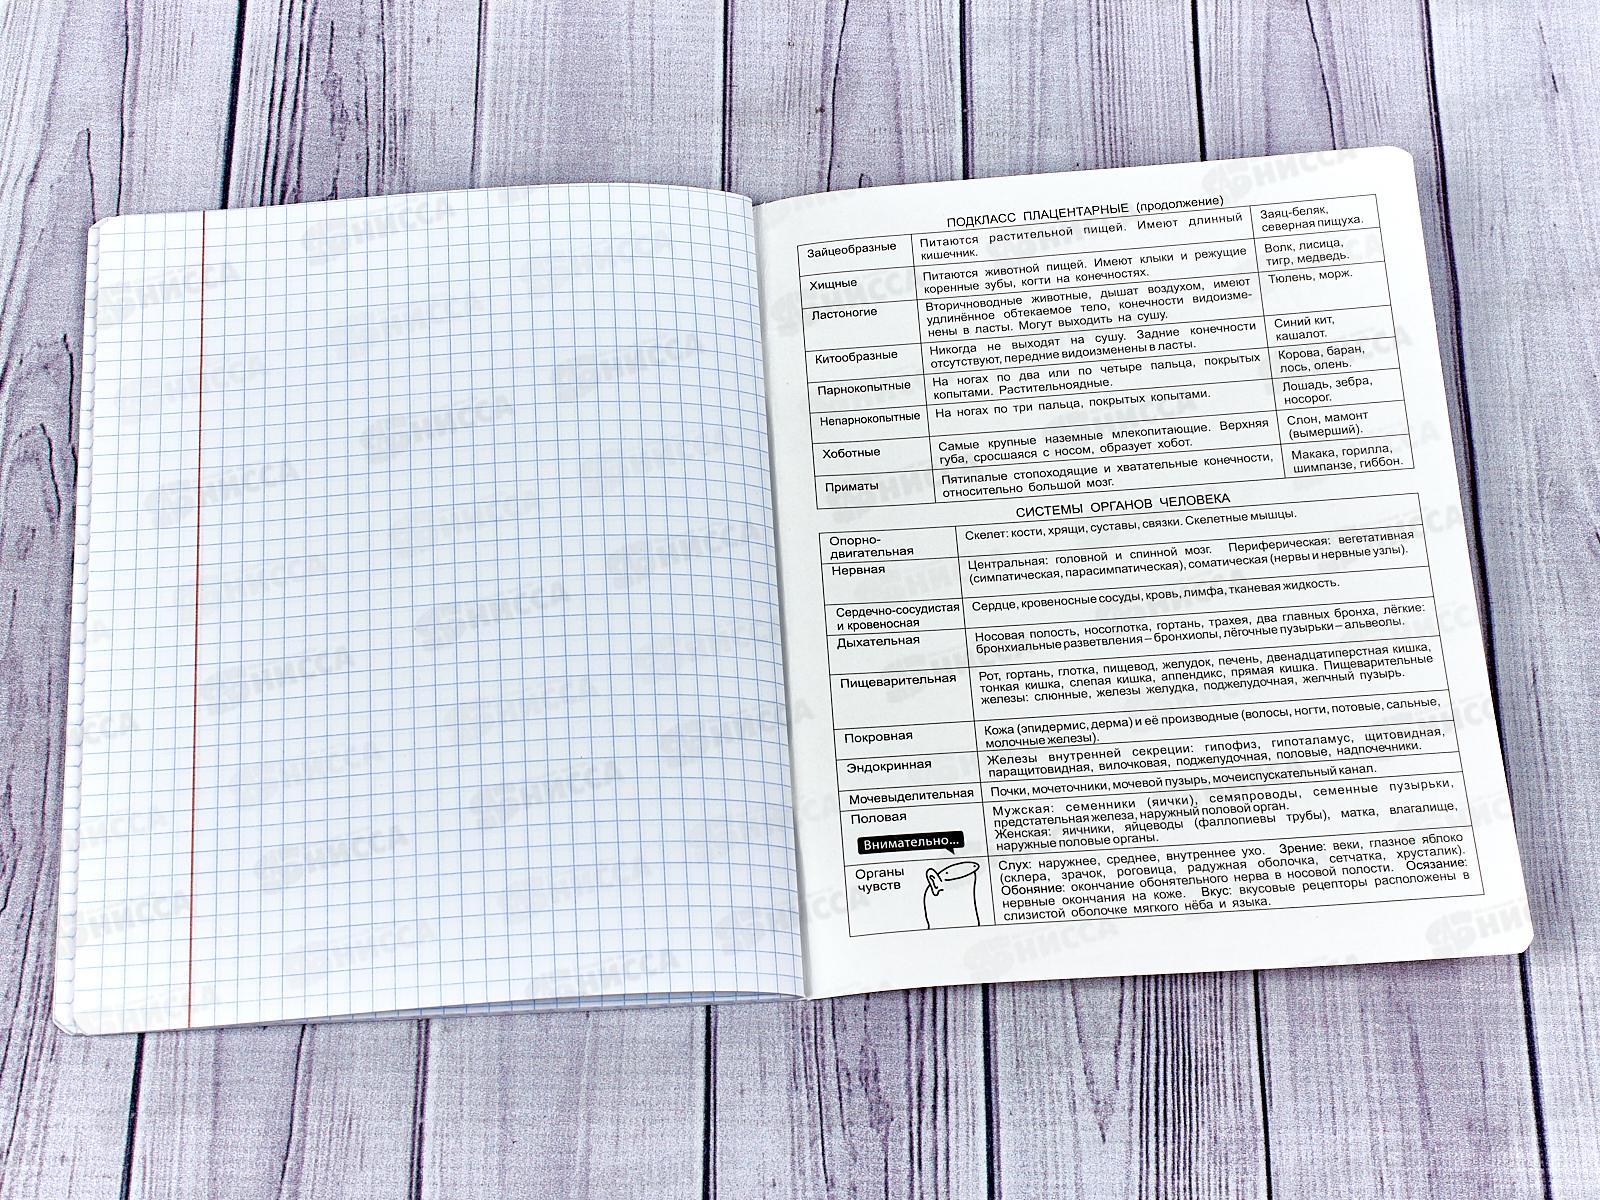 ПОДКЛАСС ПЛАЦЕНТАРНЫЕ (продолжение)
Зайцеобразные
Питаются растительной пищей. Имеют длинный
кишечник.
Заяц-беляк,
северная пищуха.
Хищные
Питаются животной пищей. Имеют клыки и режущие
коренные зубы, когти на конечностях.
Волк, лисица,
тигр, медведь.
Ластоногие
Вторичноводные животные, дышат воздухом, имеют
удлинённое обтекаемое тело, конечности видоизме-
нены в ласты. Могут выходить на сушу.
Тюлень, морж.
Китообразные
Никогда не выходят на сушу. Задние конечности
отсутствуют, передние видоизменены в ласты.
Синий кит,
кашалот.
Парнокопытные
На ногах по два или по четыре пальца, покрытых
копытами. Растительноядные.
Корова, баран,
лось, олень.
Непарнокопытные
На ногах по три пальца, покрытых копытами.
Лошадь, зебра,
носорог.
Хоботные
Самые крупные наземные млекопитающие. Верхняя
губа, сросшаяся с носом, образует хобот.
Слон, мамонт
(вымерший).
Приматы
Пятипалые стопоходящие и хватательные конечности,
относительно большой мозг.
Макака, горилла,
шимпанзе, гиббон.
СИСТЕМЫ ОРГАНОВ ЧЕЛОВЕКА
Опорно-
двигательная
Скелет: кости, хрящи, суставы, связки. Скелетные мышцы.
Нервная
Центральная: головной и спинной мозг. Периферическая: вегетативная
(симпатическая, парасимпатическая), соматическая (нервы и нервные узлы).
Сердечно-сосудистая
и кровеносная
Сердце, кровеносные сосуды, кровь, лимфа, тканевая жидкость.
Дыхательная
Носовая полость, носоглотка, гортань, трахея, два главных бронха, лёгкие:
бронхиальные разветвления – бронхиолы, лёгочные пузырьки – альвеолы.
Пищеварительная
Рот, гортань, глотка, пищевод, желудок, печень, двенадцатиперстная кишка,
тонкая кишка, слепая кишка, аппендикс, прямая кишка. Пищеварительные
железы: слюнные, железы желудка, поджелудочная, желчный пузырь.
Покровная
Кожа (эпидермис, дерма) и её производные (волосы, ногти, потовые, сальные,
молочные железы).
Эндокринная
Железы внутренней секреции: гипофиз, гипоталамус, щитовидная,
паращитовидная, вилочковая, поджелудочная, половые, надпочечники.
Мочевыделительная
Почки, мочеточники, мочевой пузырь, мочеиспускательный канал.
Половая
Внимательно...
Мужская: семенники (яички), семяпроводы, семенные пузырьки,
предстательная железа, наружный половой орган.
Женская: яичники, яйцеводы (фаллопиевы трубы), матка, влагалище,
наружные половые органы.
Органы
чувств
Слух: наружнее, среднее, внутреннее ухо. Зрение: веки, глазное яблоко
(склера, зрачок, роговица, радужная оболочка, сетчатка, хрусталик).
Обоняние: окончание обонятельного нерва в носовой полости. Осязание:
нервные окончания на коже. Вкус: вкусовые рецепторы расположены в
слизистой оболочке мягкого нёба и языка.